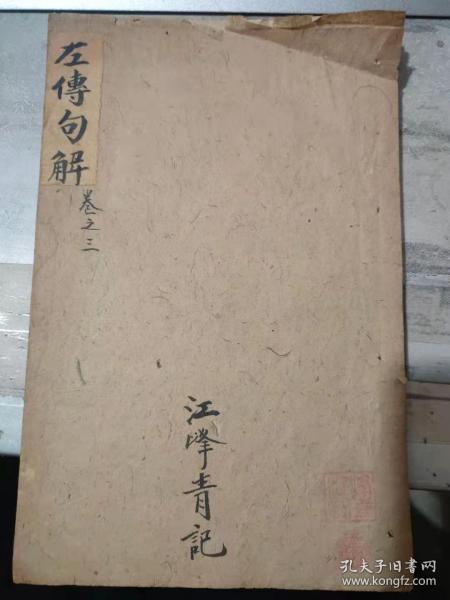 左傳句解
卷之三
江峰青記
孔夫子旧书网
www.kongfz.com